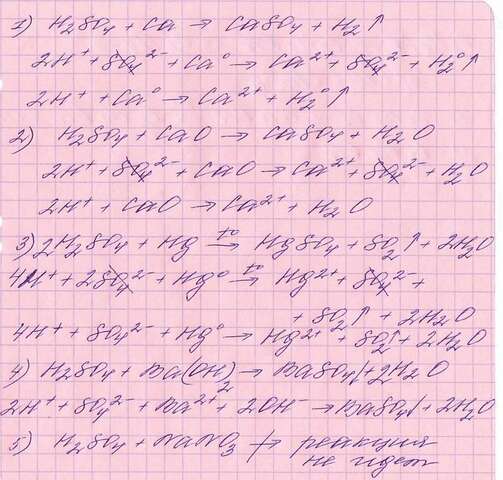 1) H₂SO₄ + Ca → CaSO₄ + H₂↑
2H⁺ + SO₄²⁻ + Ca⁰ → Ca²⁺ + SO₄²⁻ + H₂⁰↑
2H⁺ + Ca⁰ → Ca²⁺ + H₂⁰↑
2) H₂SO₄ + CaO → CaSO₄ + H₂O
2H⁺ + SO₄²⁻ + CaO → Ca²⁺ + SO₄²⁻ + H₂O
2H⁺ + CaO → Ca²⁺ + H₂O
3) 2H₂SO₄ + Hg →t⁰ HgSO₄ + SO₂↑ + 2H₂O
4H⁺ + 2SO₄²⁻ + Hg⁰ →t⁰ Hg²⁺ + SO₄²⁻ +
+ SO₂↑ + 2H₂O
4H⁺ + SO₄²⁻ + Hg⁰ → Hg²⁺ + SO₂↑ + 2H₂O
4) H₂SO₄ + Ba(OH)₂ → BaSO₄↓ + 2H₂O
2H⁺ + SO₄²⁻ + Ba²⁺ + 2OH⁻ → BaSO₄↓ + 2H₂O
5) H₂SO₄ + NaNO₃ ↛ реакция
не идет